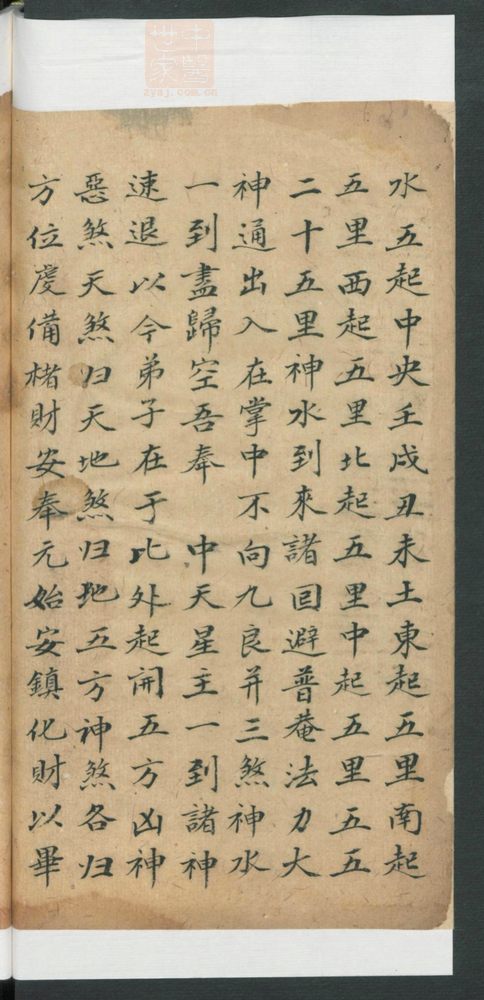 水五起中央壬戌丑未土東起五里南起
五里西起五里北起五里中起五里五五
二十五里神水到來諸回避普菴法力大
神通出入在掌中不向九良并三煞神水
一到盡歸空吾奉 中天星主一到諸神
速退以今弟子在于此外起開五方凶神
惡煞天煞归天地煞归地五方神煞各归
方位虔備楮財安奉元始安鎮化財以畢
中醫世家
zysj.com.cn